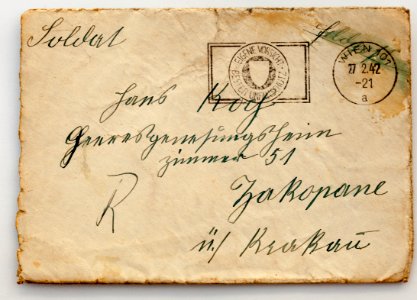 Soldat
Feldpost
WIEN 101
27. 2. 42
-21
a
Hans
Heeresgenesungsheim
zimmer 51
R
Zakopane
ü./ Krakau